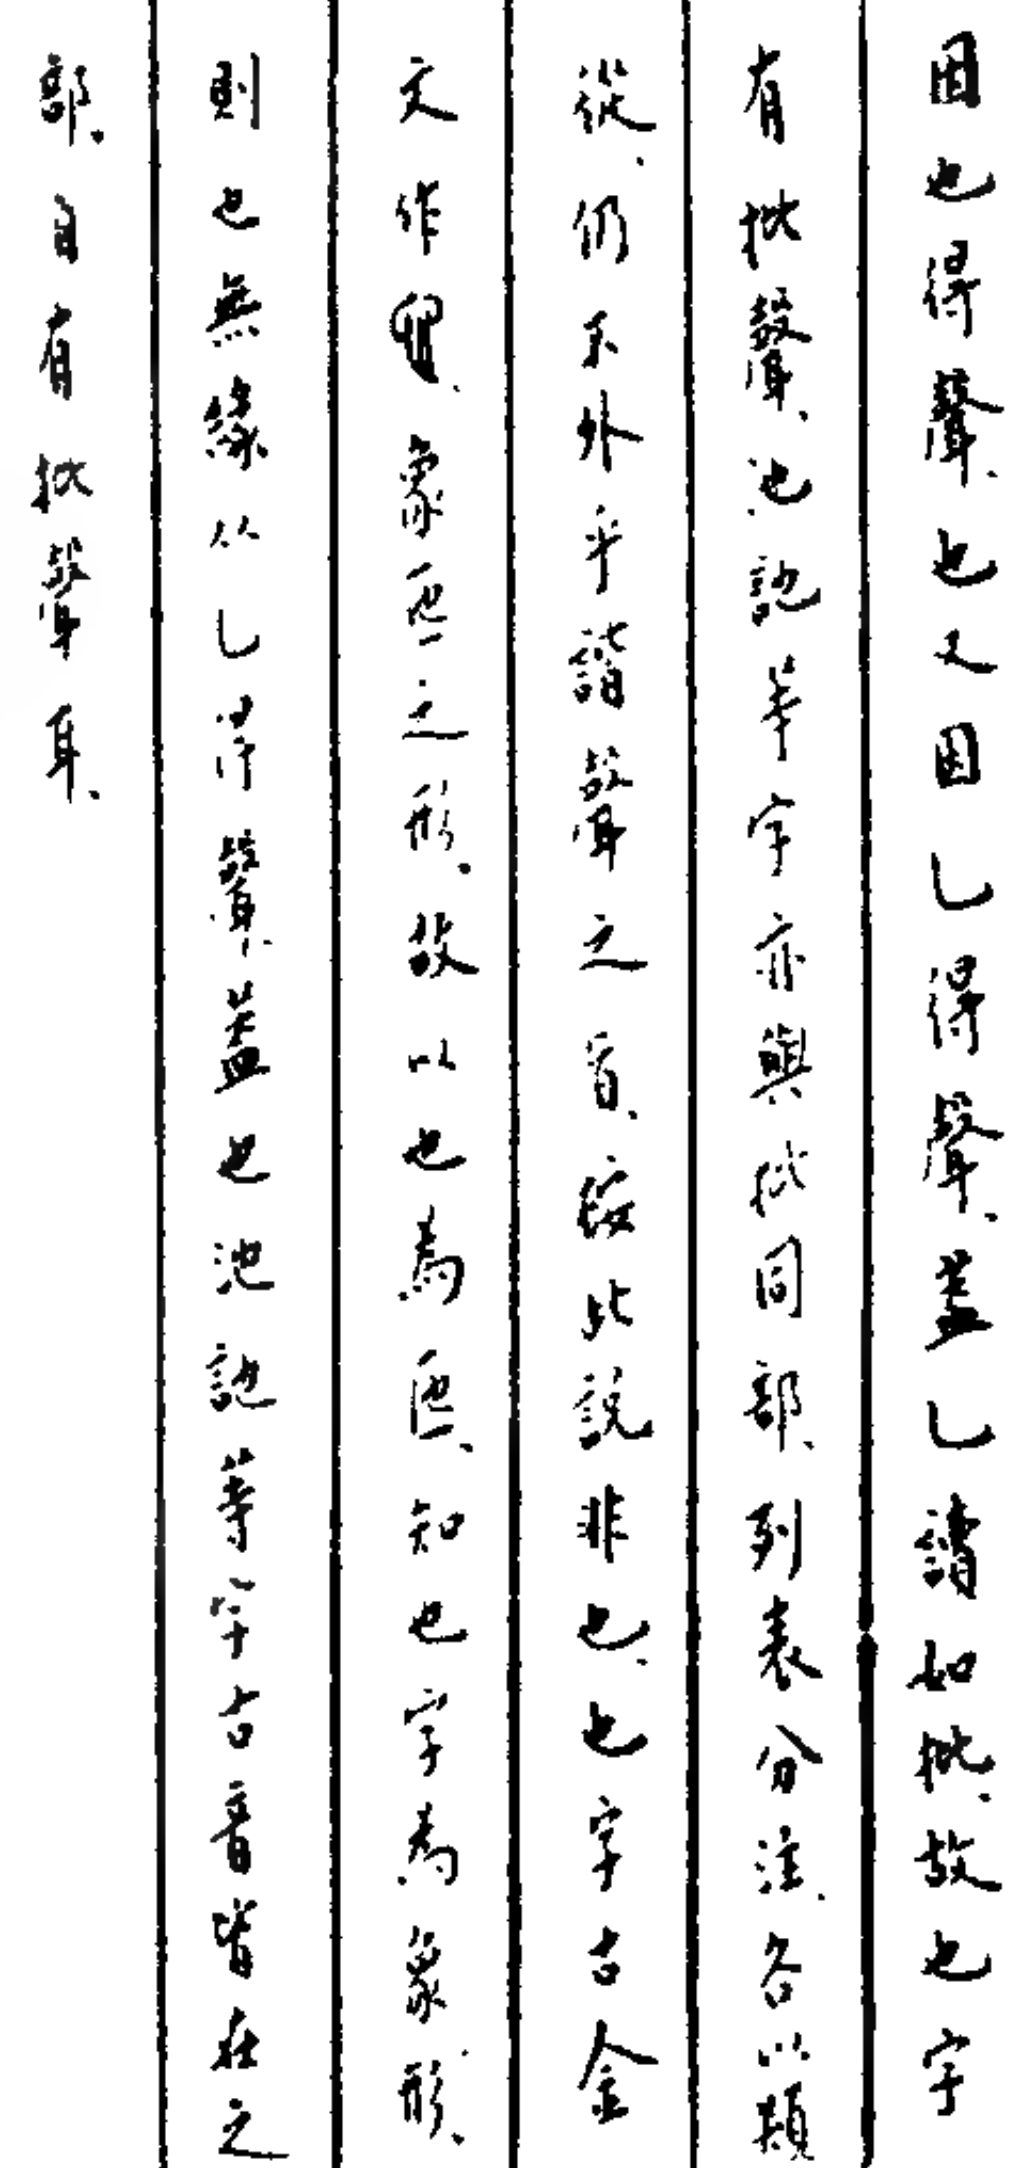 因也得聲、也又因乚得聲、蓋乚讀如批、故也字
有批聲、池訑等字亦與批同部、列表分注、各以類
從、仍不外乎諧聲之旨、按此說非也、也字古金
文作、象匜之形、故以也為匜、知也字為象形、
則也無緣从乚得聲、蓋也池訑等字古音皆在之
部、自有批聲耳、